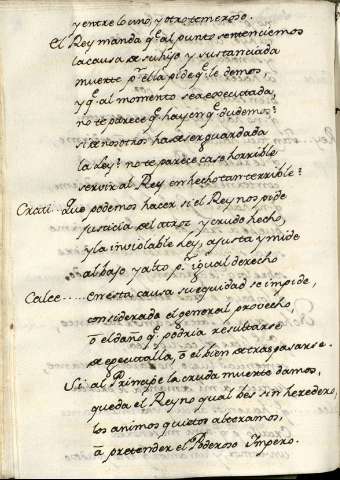 y entre lo uno, y otro temeroso.
El Rey manda q̃ al punto sentenciemos
la causa de su hijo y sustanciada
muerte pr ella pide q̃ le demos
y q̃ al momento sea executada,
no te parece q̃ hay en q̃ dudemos?
si de nosotros ha de ser guardada
la Ley? no te parece caso horrible
servir al Rey en hecho tan terrible?
Crati - Que podemos hacer si el Rey nos pide
justicia del atroz y crudo hecho,
y la inviolable Ley, ajusta y mide
al bajo y alto pr igual derecho
Calce ..... en esta causa su equidad se impide,
considerada el general provecho
o el daño q̃ podria resultarse
de egecutalla, o el bien de traspasarse.
Si al Principe la cruda muerte damos,
queda el Reyno qual bes sin heredero,
los animos quietos alteramos,
a pretender el Poderoso Impero.